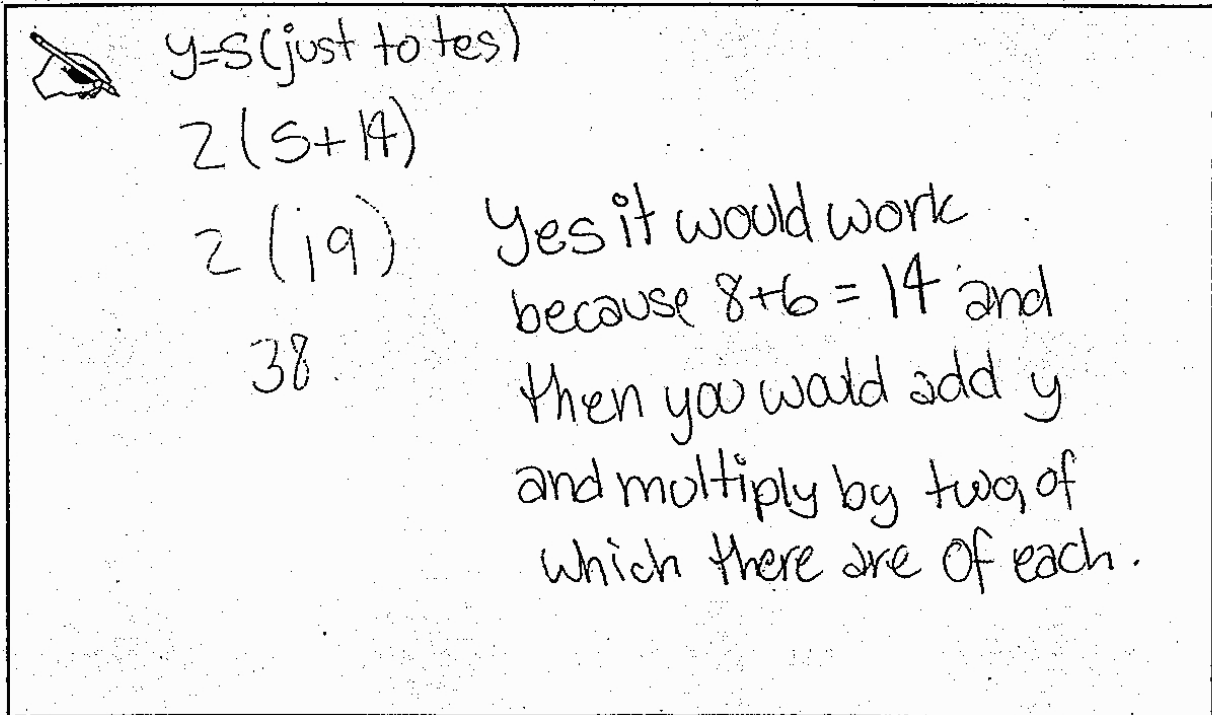 y=5(just to tes)
2(5+14)
2(19)
38
Yes it would work
because 8+6=14 and
then you would add y
and multiply by two, of
which there are of each.